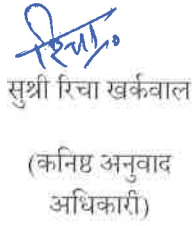 रिचा
सुश्री रिचा खर्कवाल
(कनिष्ठ अनुवाद
अधिकारी)